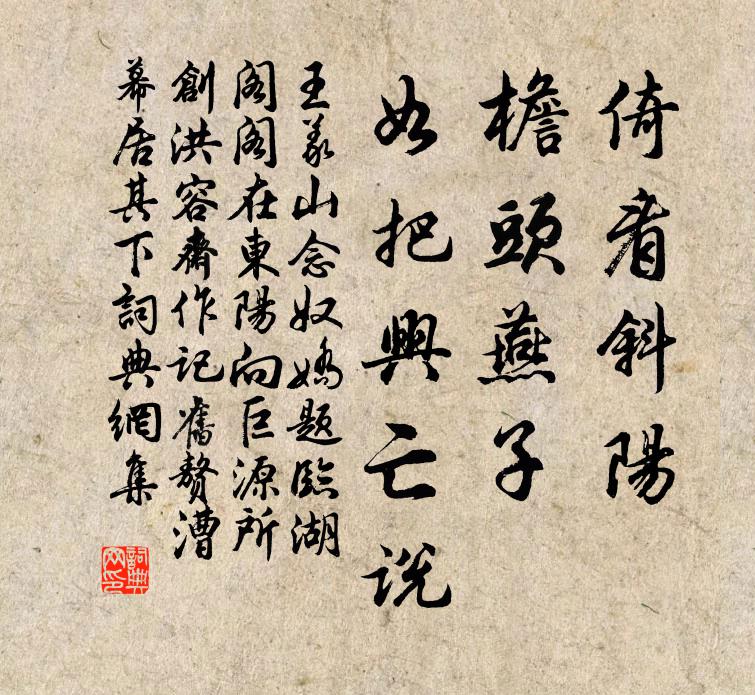 倚看斜陽
檐頭燕子
如把興亡說
王義山念奴嬌題臨湖
閣閣在東陽向巨源所
創洪容齋作記舊贅漕
幕居其下詞典網集
詞典
网印